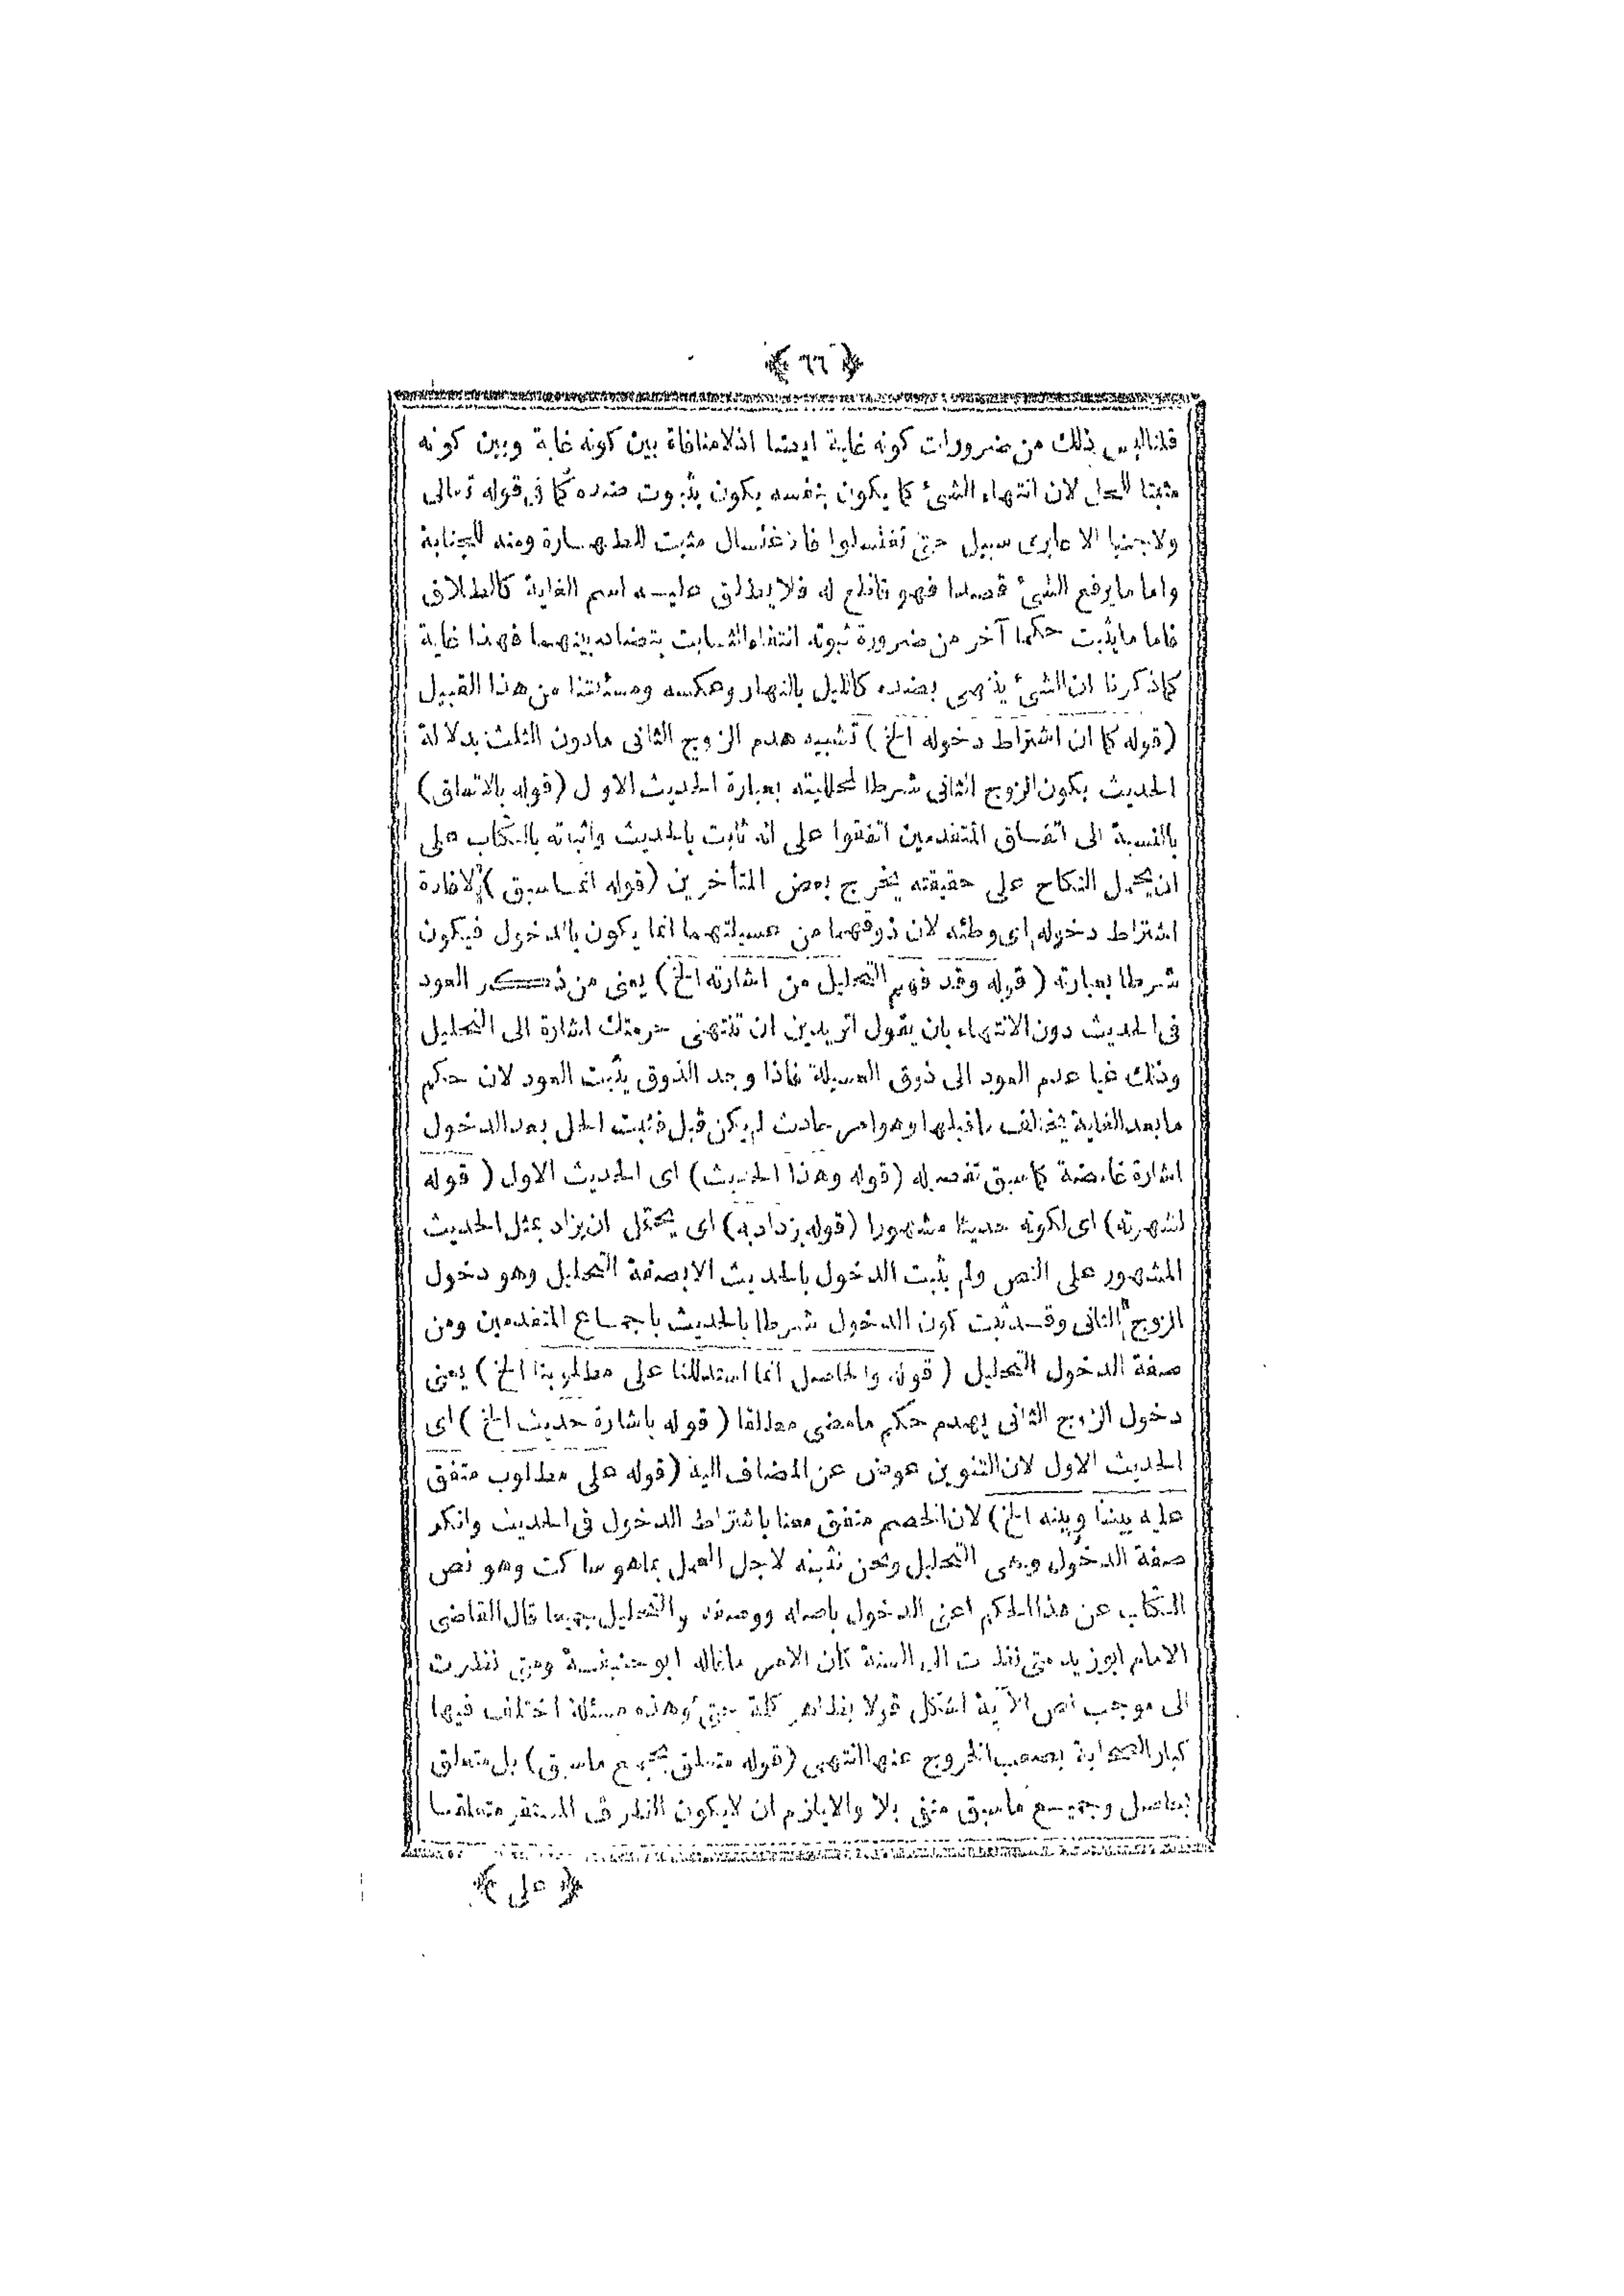 ﴿ ٦٦ ﴾
قلنا ليس ذلك من ضرورات كونه غاية ايضا اذ لا منافاة بين كونه غاية وبين كونه
مثبتا للحل لان انتهاء الشئ كما يكون بنفسه يكون بثبوت ضده كما في قوله تعالى
ولا جنبا الا عابرى سبيل حتى تغتسلوا فالاغتسال مثبت للطهارة ومنه للجنابة
واما ما يرفع الشئ قصدا فهو قاطع له فلا يطلق عليه اسم الغاية كالطلاق
فاما ما يثبت حكما آخر من ضرورة ثبوته انتفاء الثابت بتضاد بينهما فهذا غاية
كما ذكرنا ان الشئ ينتهى بضده كالليل بالنهار وعكسه ومسئلتنا من هذا القبيل
(قوله كما ان اشتراط دخوله الخ) تشبيه هدم الزوج الثانى مادون الثلث بدلالة
الحديث بكون الزوج الثانى شرطا لمحلليته بعبارة الحديث الاول (قوله بالاتفاق)
بالنسبة الى اتفاق المتقدمين اتفقوا على انه ثابت بالحديث واثباته بالكتاب على
ان يحمل النكاح على حقيقته يخرج بعض المتأخرين (قوله انما سبق) لافادة
اشتراط دخوله اى وطئه لان ذوقهما من عسيلتهما انما يكون بالدخول فيكون
شرطا بعبارته (قوله وقد فهم التحليل من اشارته الخ) يعنى من ذكر العود
فى الحديث دون الانتهاء بان يقول اتريدين ان تنتهى حرمتك اشارة الى التحليل
وذلك غيا عدم العود الى ذوق العسيلة فاذا وجد الذوق يثبت العود لان حكم
ما بعد الغاية يخالف ما قبلها وهو امر حادث لم يكن قبل فثبت الحل بعد الدخول
اشارة غامضة كما سبق تفصيله (قوله وهذا الحديث) اى الحديث الاول (قوله
لشهرته) اى لكونه حديثا مشهورا (قوله يزاد به) اى يحتمل ان يزاد بمثل الحديث
المشهور على النص ولم يثبت الدخول بالحديث الا بصفة التحليل وهو دخول
الزوج الثانى وقد ثبت كون الدخول شرطا بالحديث باجماع المتقدمين ومن
صفة الدخول التحليل (قوله والحاصل انما استدللنا على مطلوبنا الخ) يعنى
دخول الزوج الثانى يهدم حكم ما مضى مطلقا (قوله باشارة حديث الخ) اى
الحديث الاول لان التنوين عوض عن المضاف اليه (قوله على مطلوب متفق
عليه بيننا وبينه الخ) لان الخصم متفق معنا باشتراط الدخول فى الحديث وانكر
صفة الدخول وهى التحليل ونحن نثبته لاجل العمل بما هو ساكت وهو نص
الكتاب عن هذا الحكم اعنى الدخول باصله ووصفه والتحليل جميعا قال القاضى
الامام ابو زيد متى نظرت الى السنة كان الامر ما قاله ابو حنيفة ومتى نظرت
الى موجب نص الآية اشكل قولا بظاهر كلة حتى وهذه مسئلة اختلف فيها
كبار الصحابة يصعب الخروج عنها انتهى (قوله متعلق بجميع ما سبق) بل متعلق
بحاصل وجميع ما سبق منفى بلا والا يلزم ان لا يكون الظرف المستقر متعلقا
﴿ على ﴾